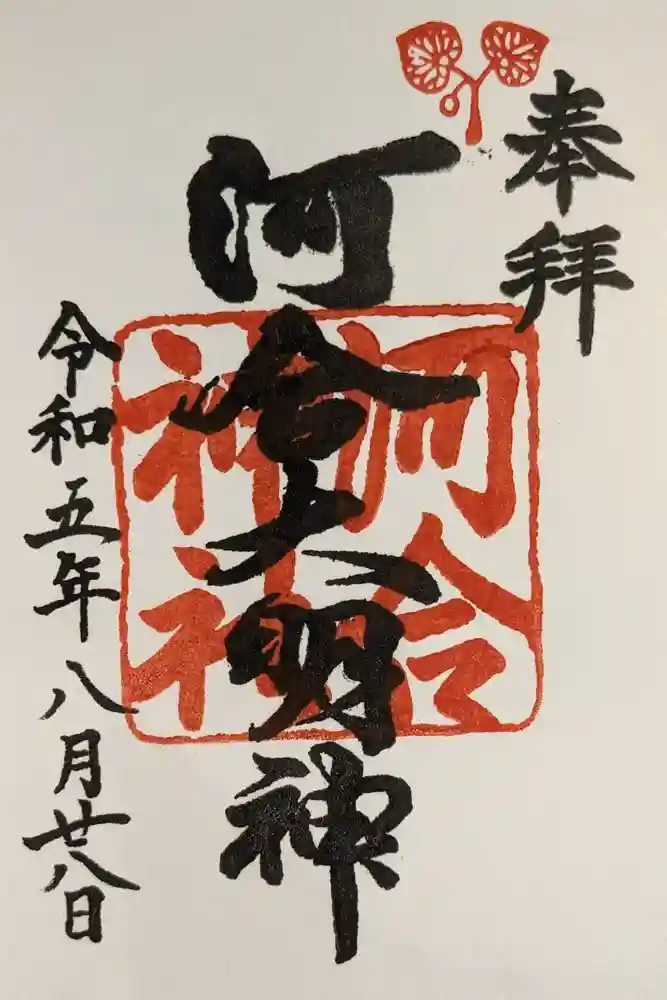 奉拝
河合大明神
河合
神社
令和五年八月廿八日